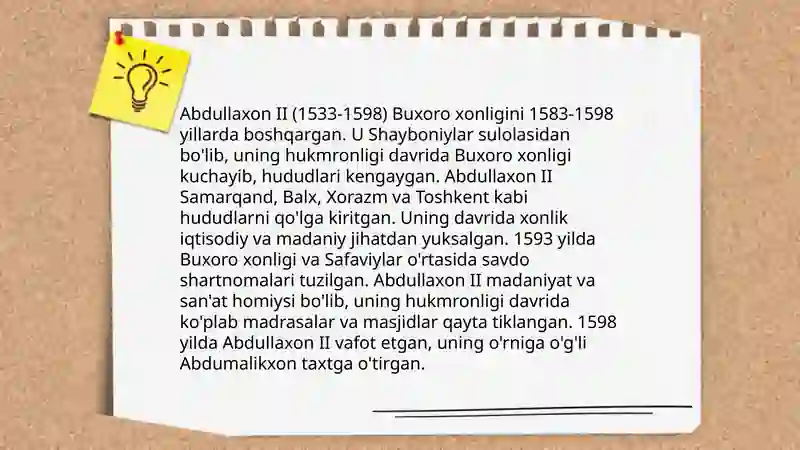 Abdullaxon II (1533-1598) Buxoro xonligini 1583-1598
yillarda boshqargan. U Shayboniylar sulolasidan
bo'lib, uning hukmronligi davrida Buxoro xonligi
kuchayib, hududlari kengaygan. Abdullaxon II
Samarqand, Balx, Xorazm va Toshkent kabi
hududlarni qo'lga kiritgan. Uning davrida xonlik
iqtisodiy va madaniy jihatdan yuksalgan. 1593 yilda
Buxoro xonligi va Safaviylar o'rtasida savdo
shartnomalari tuzilgan. Abdullaxon II madaniyat va
san'at homiysi bo'lib, uning hukmronligi davrida
ko'plab madrasalar va masjidlar qayta tiklangan. 1598
yilda Abdullaxon II vafot etgan, uning o'rniga o'g'li
Abdumalikxon taxtga o'tirgan.